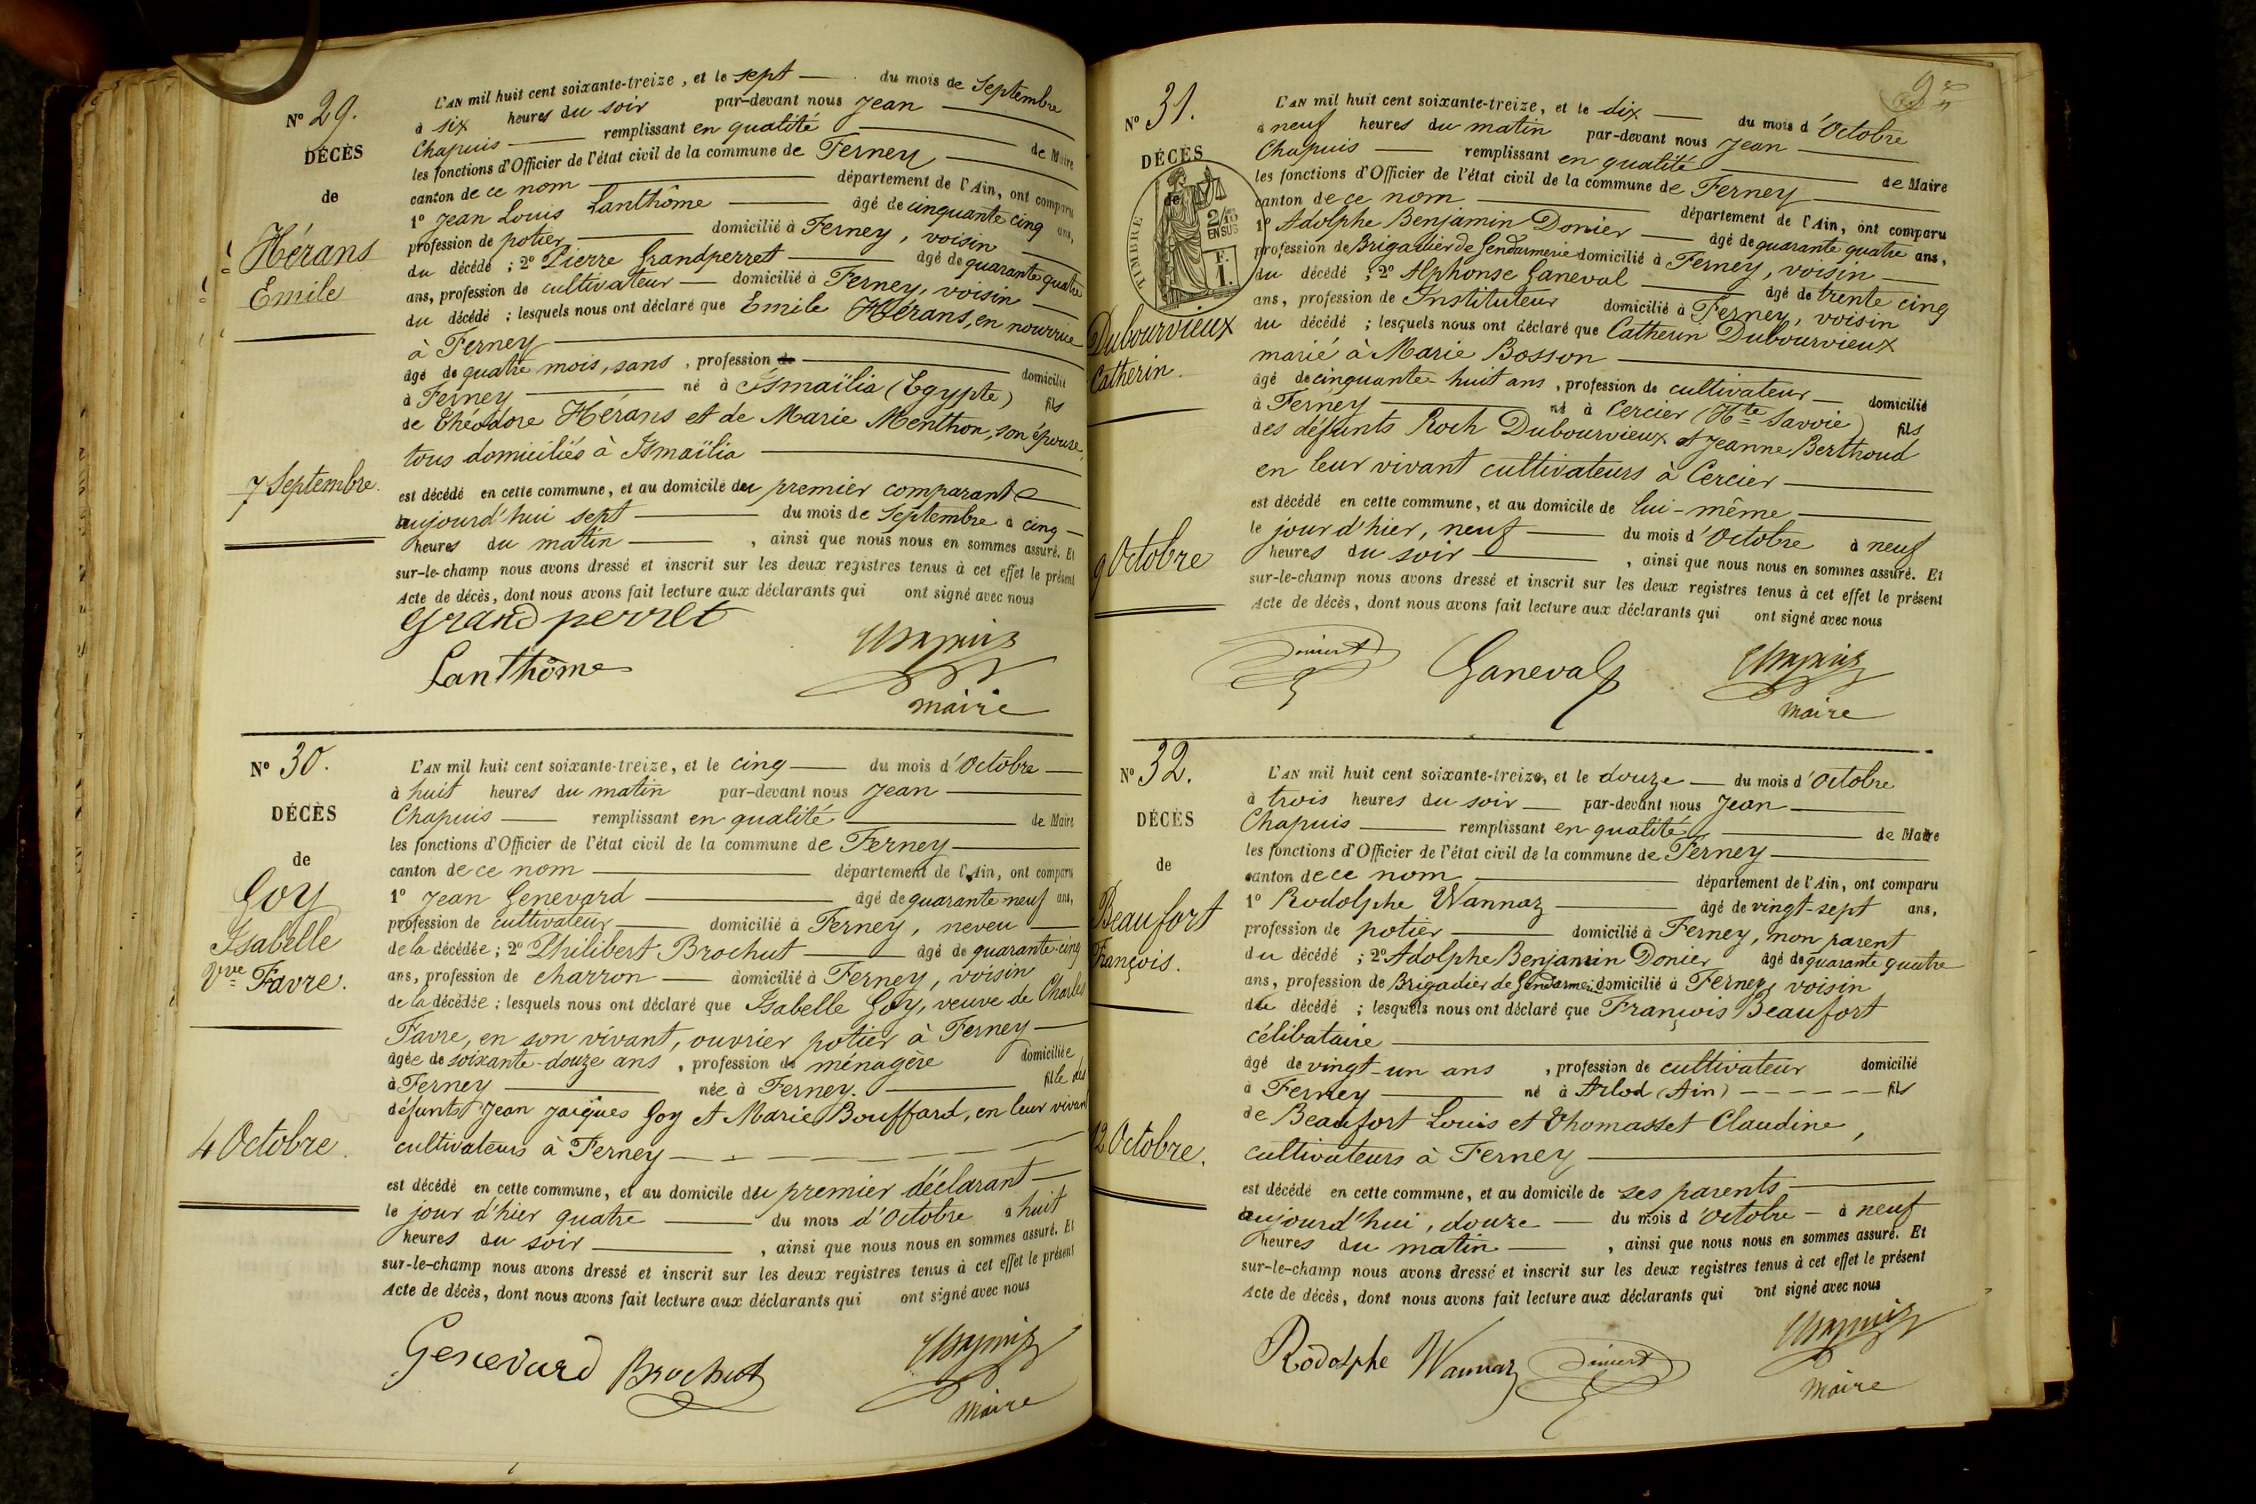 N° 29.
DÉCÈS
de
Hérans
Emile
7 Septembre.
L'AN mil huit cent soixante-treize, et le sept du mois de Septembre
à six heures du soir par-devant nous Jean
Chapuis remplissant en qualité de Maire
les fonctions d'Officier de l'état civil de la commune de Ferney
canton de ce nom département de l'Ain, ont comparu
1° Jean Louis Lanthôme âgé de cinquante cinq ans,
profession de potier domicilié à Ferney, voisin
du décédé ; 2° Pierre Grandperret âgé de quarante quatre
ans, profession de cultivateur domicilié à Ferney, voisin
du décédé ; lesquels nous ont déclaré que Emile Hérans, en nourrice
à Ferney
âgé de quatre mois, sans , profession de domicilié
à Ferney né à Ismaïlia (Egypte) fils
de Théodore Hérans et de Marie Menthon, son épouse,
tous domiciliés à Ismaïlia
est décédé en cette commune, et au domicile du premier comparant
aujourd'hui sept du mois de Septembre à cinq
heures du matin , ainsi que nous nous en sommes assuré. Et
sur-le-champ nous avons dressé et inscrit sur les deux registres tenus à cet effet le présent
Acte de décès, dont nous avons fait lecture aux déclarants qui ont signé avec nous
Grandperret
Chapuis
Lanthôme
maire
N° 30.
DÉCÈS
de
Goy
Isabelle
Vve Favre.
4 Octobre.
L'AN mil huit cent soixante-treize, et le cinq du mois d'Octobre
à huit heures du matin par-devant nous Jean
Chapuis remplissant en qualité de Maire
les fonctions d'Officier de l'état civil de la commune de Ferney
canton de ce nom département de l'Ain, ont comparu
1° Jean Genevard âgé de quarante-neuf ans,
profession de cultivateur domicilié à Ferney, neveu
de la décédée ; 2° Philibert Brochut âgé de quarante-cinq
ans, profession de charron domicilié à Ferney, voisin
de la décédée ; lesquels nous ont déclaré que Isabelle Goy, veuve de Charles
Favre, en son vivant, ouvrier potier à Ferney
âgée de soixante-douze ans , profession de ménagère domiciliée
à Ferney née à Ferney. fille des
défunts Jean Jacques Goy et Marie Bouffard, en leur vivant
cultivateurs à Ferney
est décédé en cette commune, et au domicile du premier déclarant
le jour d'hier quatre du mois d'Octobre à huit
heures du soir , ainsi que nous nous en sommes assuré. Et
sur-le-champ nous avons dressé et inscrit sur les deux registres tenus à cet effet le présent
Acte de décès, dont nous avons fait lecture aux déclarants qui ont signé avec nous
Genevard Brochut Chapuis
Maire
N° 31.
DÉCÈS
de
TIMBRE
2/10
EN SUS
F.
1.
Dubourvieux
Catherin.
9 Octobre
L'AN mil huit cent soixante-treize, et le dix du mois d'Octobre
à neuf heures du matin par-devant nous Jean
Chapuis remplissant en qualité de Maire
les fonctions d'Officier de l'état civil de la commune de Ferney
canton de ce nom département de l'Ain, ont comparu
1° Adolphe Benjamin Donier âgé de quarante quatre ans,
profession de Brigadier de Gendarmerie domicilié à Ferney, voisin
du décédé ; 2° Alphonse Ganeval âgé de trente cinq
ans, profession de Instituteur domicilié à Ferney, voisin
du décédé ; lesquels nous ont déclaré que Catherin Dubourvieux
marié à Marie Bosson
âgé de cinquante-huit ans , profession de cultivateur domicilié
à Ferney né à Cercier (Hte Savoie) fils
des défunts Roch Dubourvieux et Jeanne Berthoud
en leur vivant cultivateurs à Cercier
est décédé en cette commune, et au domicile de lui-même
le jour d'hier, neuf du mois d'Octobre à neuf
heures du soir , ainsi que nous nous en sommes assuré. Et
sur-le-champ nous avons dressé et inscrit sur les deux registres tenus à cet effet le présent
Acte de décès, dont nous avons fait lecture aux déclarants qui ont signé avec nous
Donier Ganeval Chapuis
Maire
N° 32.
DÉCÈS
de
Beaufort
François.
12 Octobre.
L'AN mil huit cent soixante-treize, et le douze du mois d'Octobre
à trois heures du soir par-devant nous Jean
Chapuis remplissant en qualité de Maire
les fonctions d'Officier de l'état civil de la commune de Ferney
canton de ce nom département de l'Ain, ont comparu
1° Rodolphe Wannaz âgé de vingt-sept ans,
profession de potier domicilié à Ferney, non parent
du décédé ; 2° Adolphe Benjamin Donier âgé de quarante quatre
ans, profession de Brigadier de Gendarmerie domicilié à Ferney, voisin
du décédé ; lesquels nous ont déclaré que François Beaufort
célibataire
âgé de vingt-un ans , profession de cultivateur domicilié
à Ferney né à Arlod (Ain) fils
de Beaufort Louis et Thomasset Claudine,
cultivateurs à Ferney
est décédé en cette commune, et au domicile de ses parents
aujourd'hui, douze du mois d'Octobre à neuf
heures du matin , ainsi que nous nous en sommes assuré. Et
sur-le-champ nous avons dressé et inscrit sur les deux registres tenus à cet effet le présent
Acte de décès, dont nous avons fait lecture aux déclarants qui ont signé avec nous
Rodolphe Wannaz Donier Chapuis
Maire